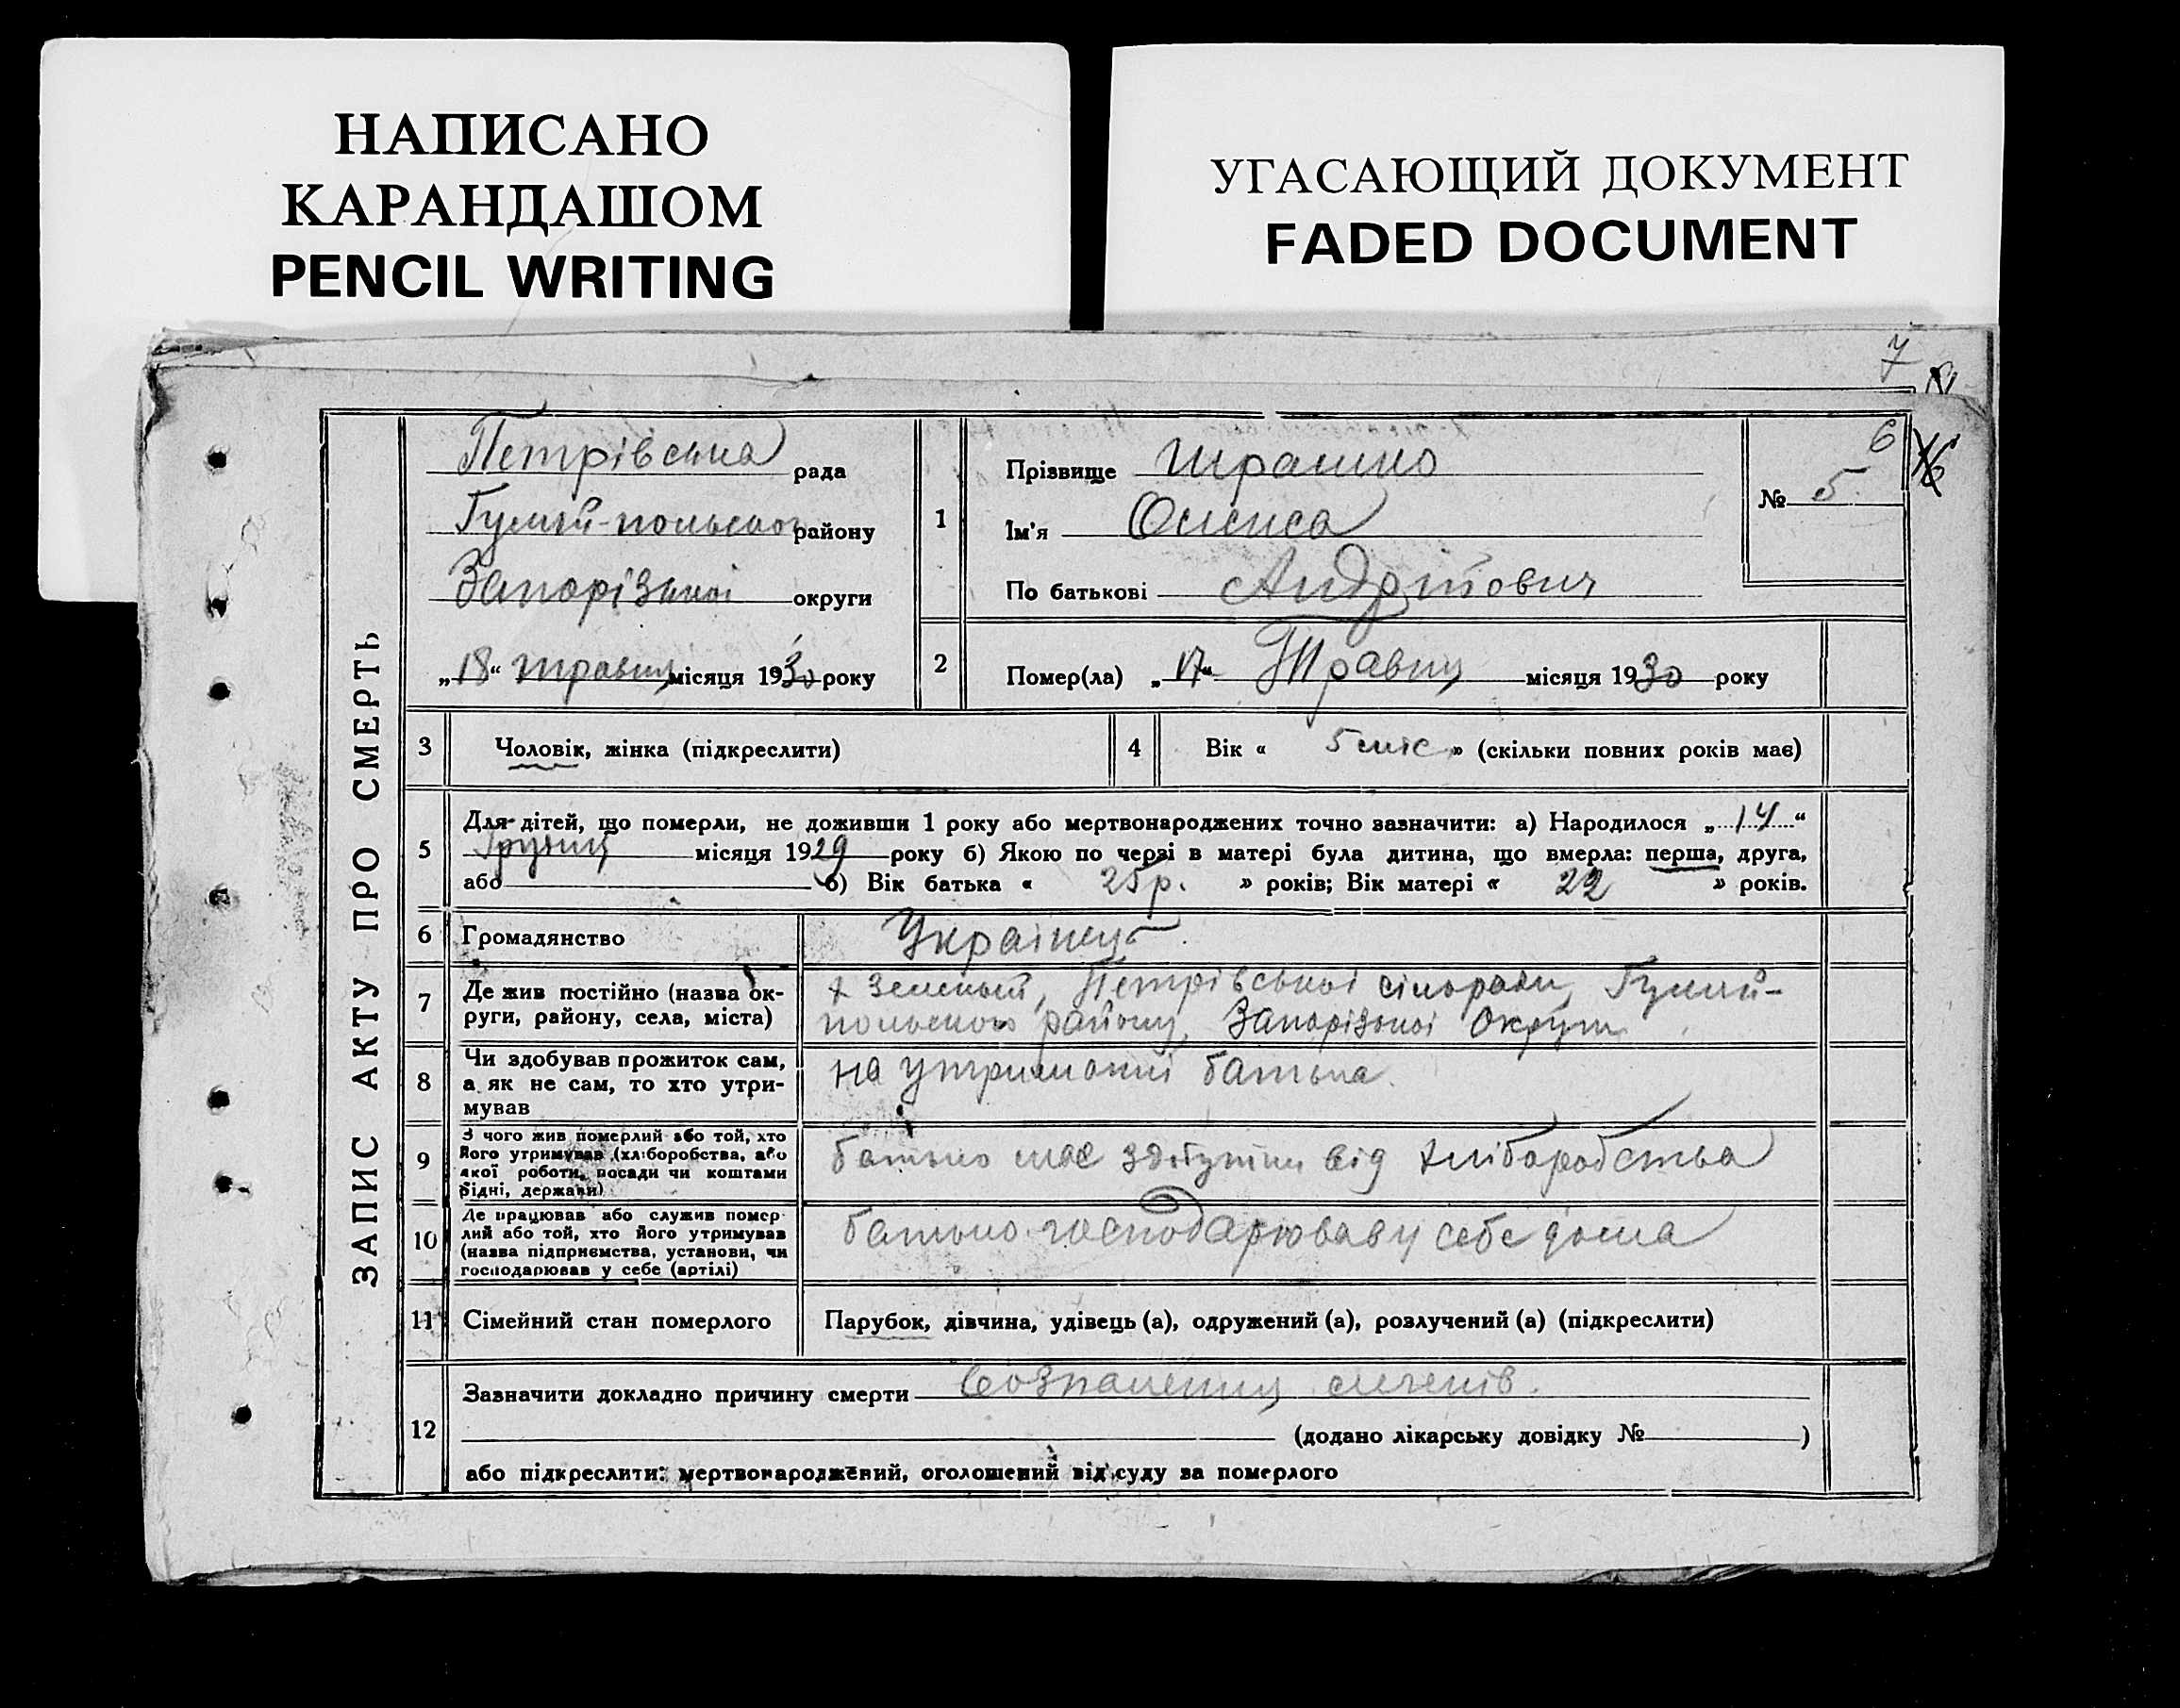 НАПИСАНО
КАРАНДАШОМ
PENCIL WRITING
УГАСАЮЩИЙ ДОКУМЕНТ
FADED DOCUMENT
7
ЗАПИС АКТУ ПРО СМЕРТЬ
Петрівська рада
Гуляй-польсько району
Запорізької округи
„18“ травня місяця 1930 року
1
Прізвище
Ім'я
По батькові Андрійович
6
№ 5
2
Помер(ла) „17“ Травня місяця 1930 року
3
Чоловік, жінка (підкреслити)
4
Вік « 5 міс » (скільки повних років має)
5
Для дітей, що померли, не доживши 1 року або мертвонароджених точно зазначити: а) Народилося „14“
Грудня місяця 1929 року б) Якою по черзі в матері була дитина, що вмерла: перша, друга,
або в) Вік батька « 25 р. » років; Вік матері « 22 » років.
6
Громадянство
Українець
7
Де жив постійно (назва ок-
руги, району, села, міста)
х Зелений, Петрівської сільради, Гуляй-
польського району, Запорізької Округи
8
Чи здобував прожиток сам,
а як не сам, то хто утри-
мував
на утриманні батька.
9
З чого жив померлий або той, хто
його утримував (хліборобства, або
якої роботи, посади чи коштами
рідні, держави)
батько має здобутки від хліборобства
10
Де працював або служив помер-
лий або той, хто його утримував
(назва підприємства, установи, чи
господарював у себе (артілі)
батько господарював у себе дома
11
Сімейний стан померлого
Парубок, дівчина, удівець (а), одружений (а), розлучений (а) (підкреслити)
12
Зазначити докладно причину смерти
(додано лікарську довідку № )
або підкреслити: мертвонароджений, оголошений від суду за померлого